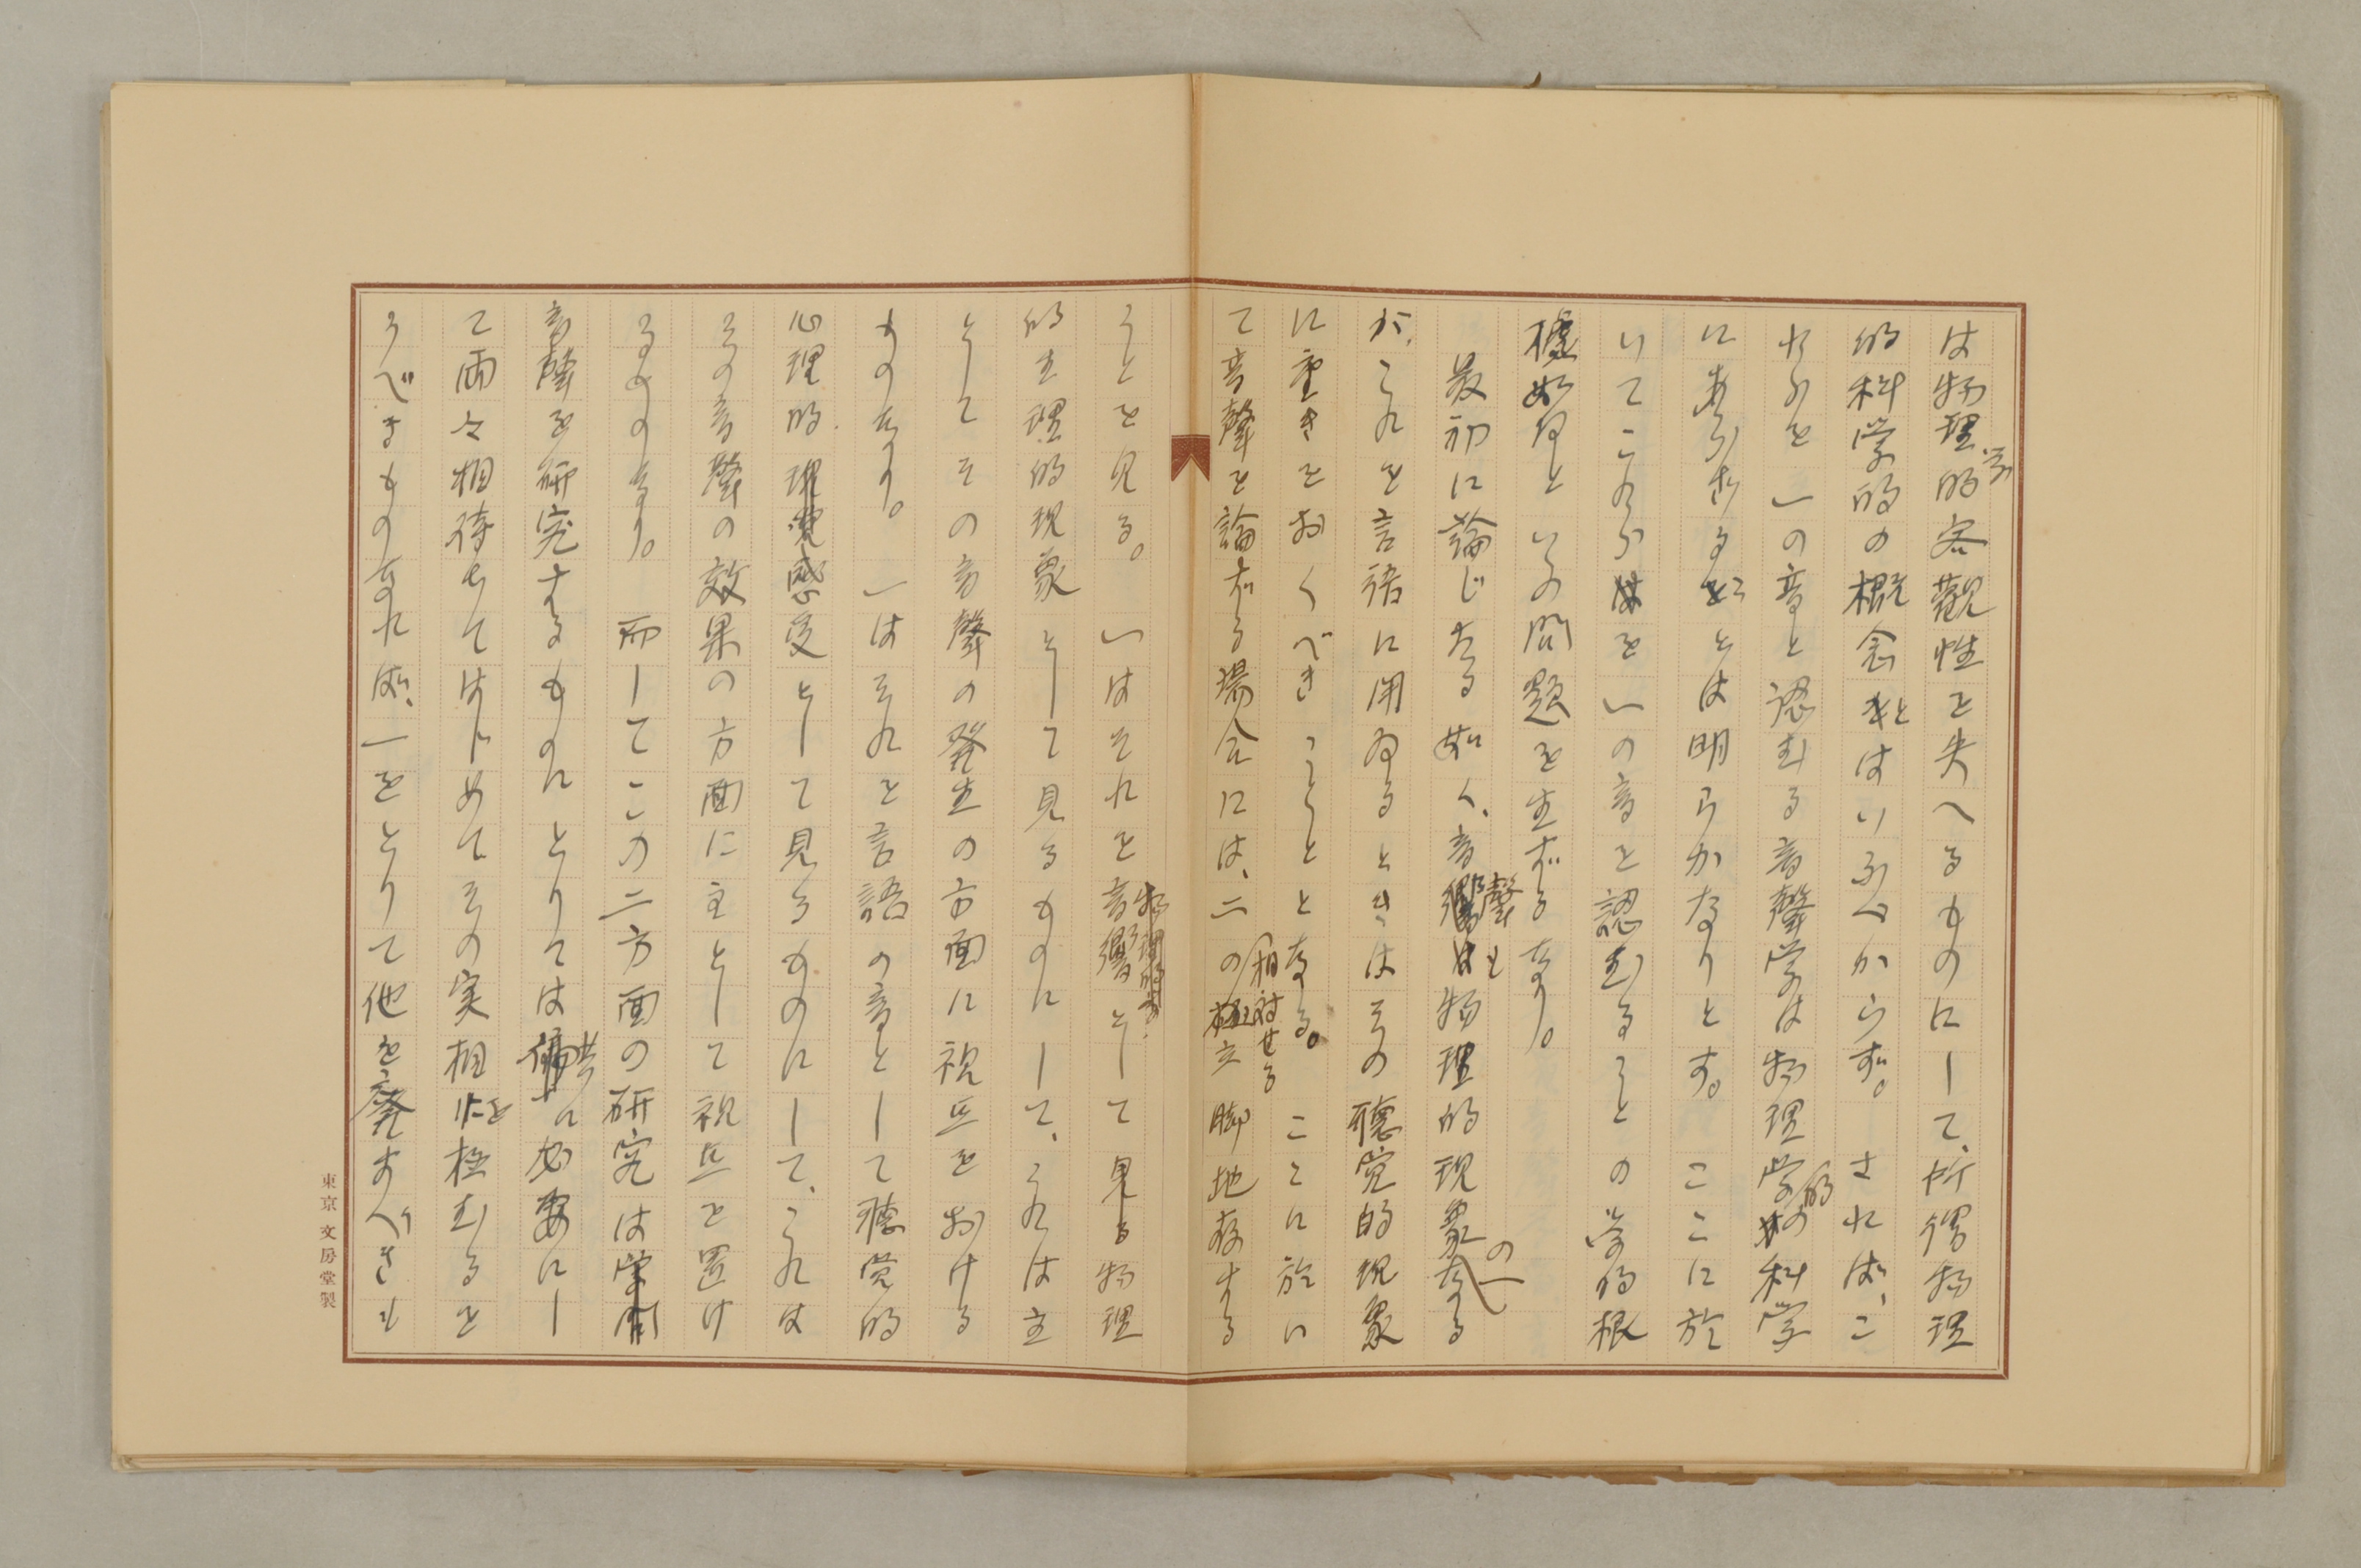 は物理学的客觀性を失へるものにして、所謂物理
的科学的の概念とはいふべからず。されば、こ
れらを一の音と認むる音聲学は物理学的の科学
にあらざることは明らかなりとす。ここに於
いてこれらを一の音と認むることの学的根
據如何といふ問題を生ずるなり。
最初に論じたる如く、音聲も物理的現象の一なる
が、これを言語に用ゐるときはその聽覚的現象
に重きをおくべきこととなる。ここに於い
て音聲を論ずる場合には、二の相対せる立脚地存する
ことを見る。一はそれを物理的の音響として見る物理
的生理的現象として見るものにして、これは主
としてその音聲の発生の方面に視点をおける
ものなり。一はそれを言語の音として聽覚的
心理的感受として見るものにして、これは
その音聲の效果の方面に主として視点を置け
るものなり。而してこの二方面の研究は
音聲を研究するものにとりては共に必要にし
て両々相待ちてはじめてその実相を極むるを
うべきものなれば、一をとりて他を廃すべきも
東京 文房堂製